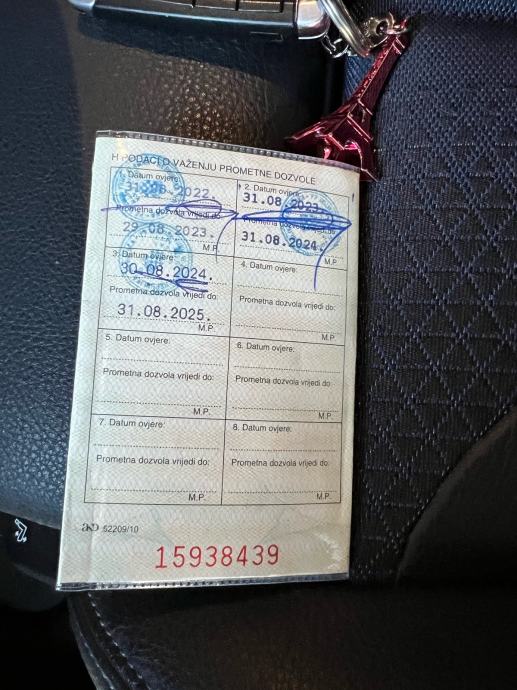 H PODACI O VAŽENJU PROMETNE DOZVOLE
1. Datum ovjere:
31.08.2022.
Prometna dozvola vrijedi do:
29.08.2023.
M.P.
2. Datum ovjere:
31.08.2023.
Prometna dozvola vrijedi do:
31.08.2024.
M.P.
3. Datum ovjere:
30.08.2024.
Prometna dozvola vrijedi do:
31.08.2025.
M.P.
4. Datum ovjere:
Prometna dozvola vrijedi do:
M.P.
5. Datum ovjere:
Prometna dozvola vrijedi do:
M.P.
6. Datum ovjere:
Prometna dozvola vrijedi do:
M.P.
7. Datum ovjere:
Prometna dozvola vrijedi do:
M.P.
8. Datum ovjere:
Prometna dozvola vrijedi do:
M.P.
AKD 52209/10
15938439